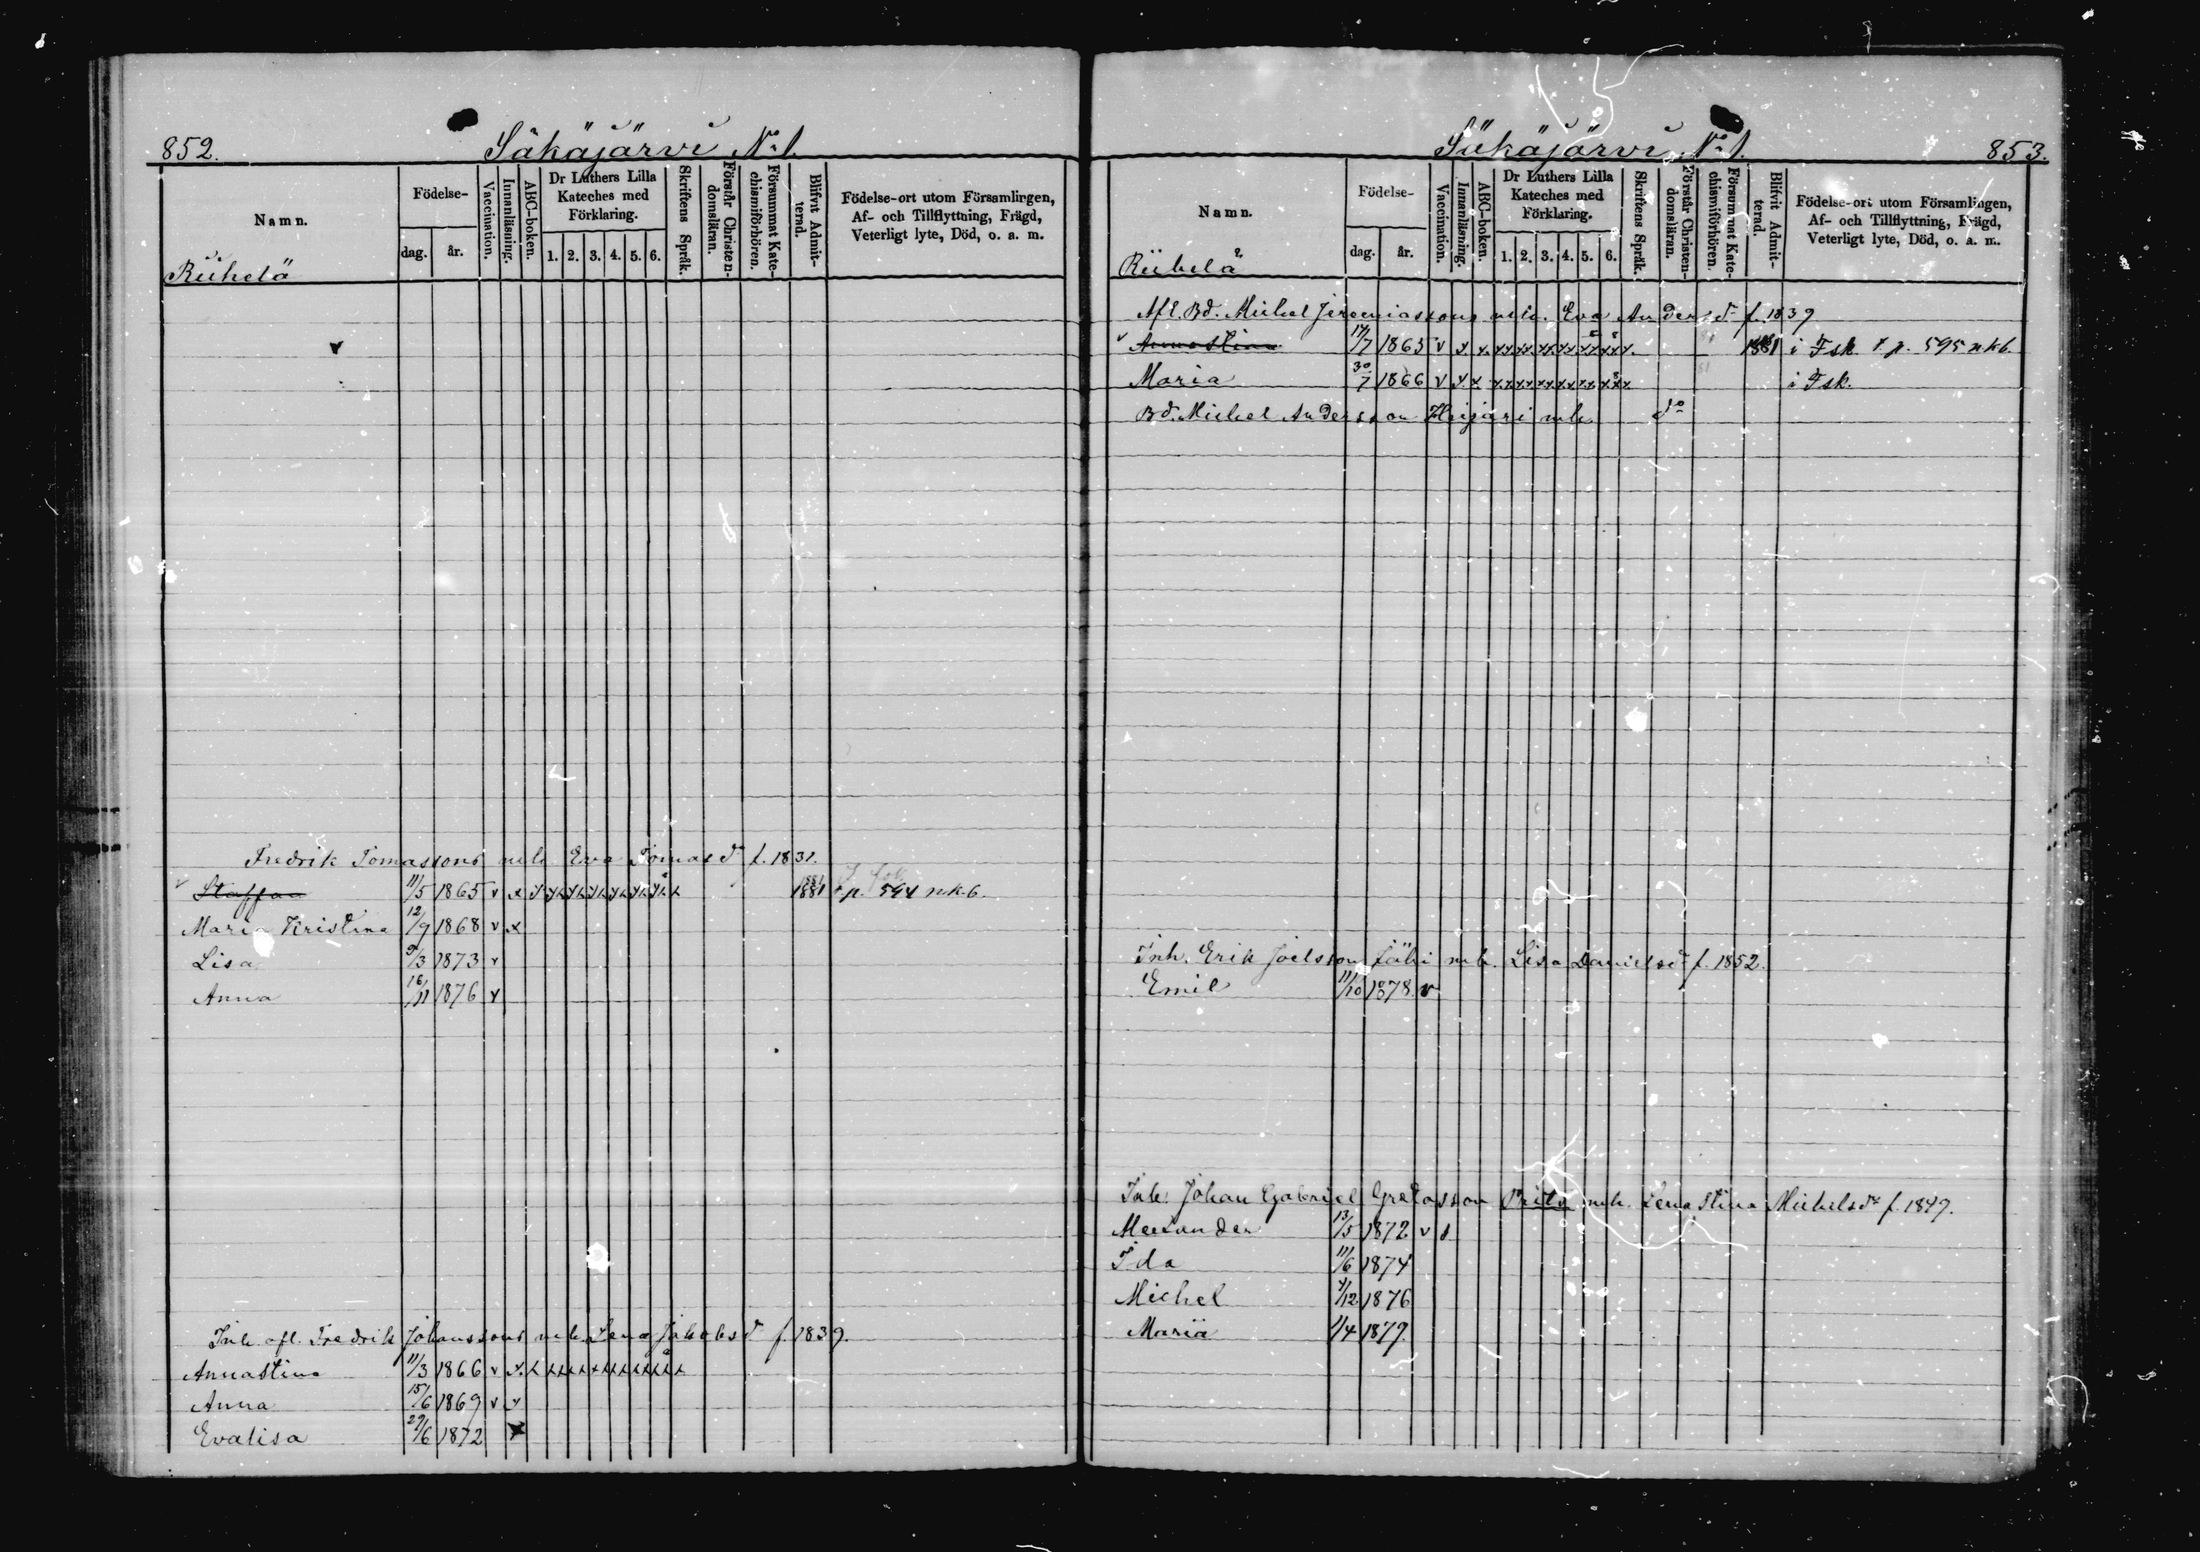 852.
Säkäjärvi No 1.
Namn.
Födelse-
dag.
år.
Vaccination.
Innanläsning.
ABC-boken.
Dr Luthers Lilla Kateches med Förklaring.
1. 2. 3. 4. 5. 6.
Skriftens Språk.
Förstår Christendomsläran.
Försummat Katechismiförhören.
Blifvit Admitterad.
Födelse-ort utom Församlingen,
Af- och Tillflyttning, Frägd,
Veterligt lyte, Död, o. a. m.
Riihelä
Fredrik Tomassons m. h. Eva Tomasdr f. 1831.
Staffan 11/5 1865 v x 1881 p. 594 n.k.b.
Maria Kristina 12/9 1868 v x
Lisa 9/3 1873 v
Anna 16/11 1876 v
Inh. afl. Fredrik Johanssons m. h. Lena Jakobsdr f. 1839.
Annastina 11/3 1866 v x
Anna 15/6 1869 v v
Evalisa 29/6 1872 x
Säkäjärvi No 1.
853.
Namn.
Födelse-
dag.
år.
Vaccination.
Innanläsning.
ABC-boken.
Dr Luthers Lilla Kateches med Förklaring.
1. 2. 3. 4. 5. 6.
Skriftens Språk.
Förstår Christendomsläran.
Försummat Katechismiförhören.
Blifvit Admitterad.
Födelse-ort utom Församlingen,
Af- och Tillflyttning, Frägd,
Veterligt lyte, Död, o. a. m.
Riihelä 2.
Afl. Bd. Michel Jeremiassons m. h. Eva Andersdr f. 1839
Annastina 17/7 1863 v x 1881 i Fsk. t. p. 595 n.k.b.
Maria 30/7 1866 v x x i Fsk.
Bd. Michel Andersson Heijari m h do
Inh. Erik Joelsson Jähi m. h. Lisa Danielsdr f. 1852.
Emil 11/10 1878. v
Inh. Johan Gabriel Gretasson m. h. Lenastina Michelsdr f. 1849.
13/5 1872 v
Ida 11/6 1874
Michel 4/12 1876
Maria 1/4 1879.